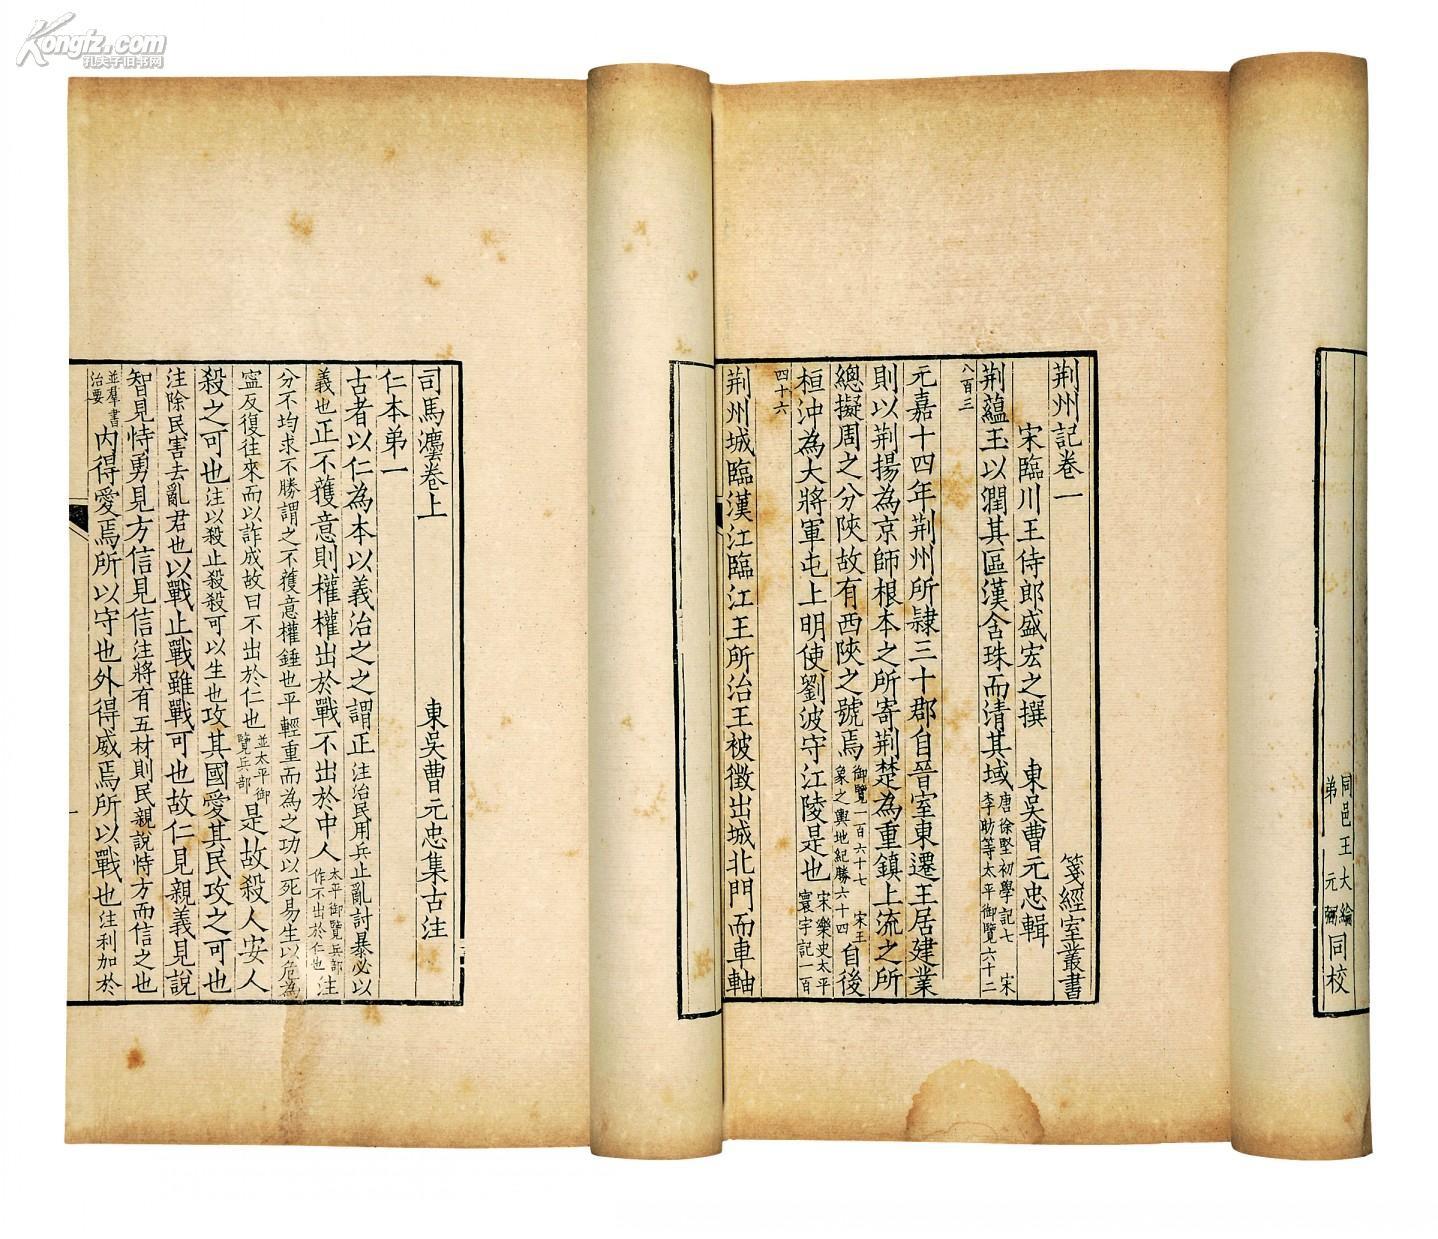 Kongfz.com
孔夫子旧书网
同邑王大綸
弟元弼同校
荆州記卷一
箋經室叢書
宋臨川王侍郎盛宏之撰 東吳曹元忠輯
荆蘊玉以潤其區漢含珠而清其域唐徐堅初學記七 宋李昉等太平御覽六十二
八百三
元嘉十四年荆州所隷三十郡自晉室東遷王居建業
則以荆揚為京師根本之所寄荆楚為重鎮上流之所
總擬周之分陝故有西陝之號焉御覽一百六十七 宋王象之輿地紀勝六十四自後
桓沖為大將軍屯上明使劉波守江陵是也宋樂史太平寰宇記一百
四十六
荆州城臨漢江臨江王所治王被徵出城北門而車軸
司馬灋卷上
東吳曹元忠集古注
仁本弟一
古者以仁為本以義治之之謂正注治民用兵止亂討暴必以
義也正不獲意則權權出於戰不出於中人太平御覽兵部作不出於仁也注
分不均求不勝謂之不獲意權錘也平輕重而為之功以死易生以危為
寍反復往來而以詐成故曰不出於仁也並太平御覽兵部是故殺人安人
殺之可也注以殺止殺殺可以生也攻其國愛其民攻之可也
注除民害去亂君也以戰止戰雖戰可也故仁見親義見說
智見恃勇見方信見信注將有五材則民親說恃方而信之也
並羣書治要內得愛焉所以守也外得威焉所以戰也注利加於
一